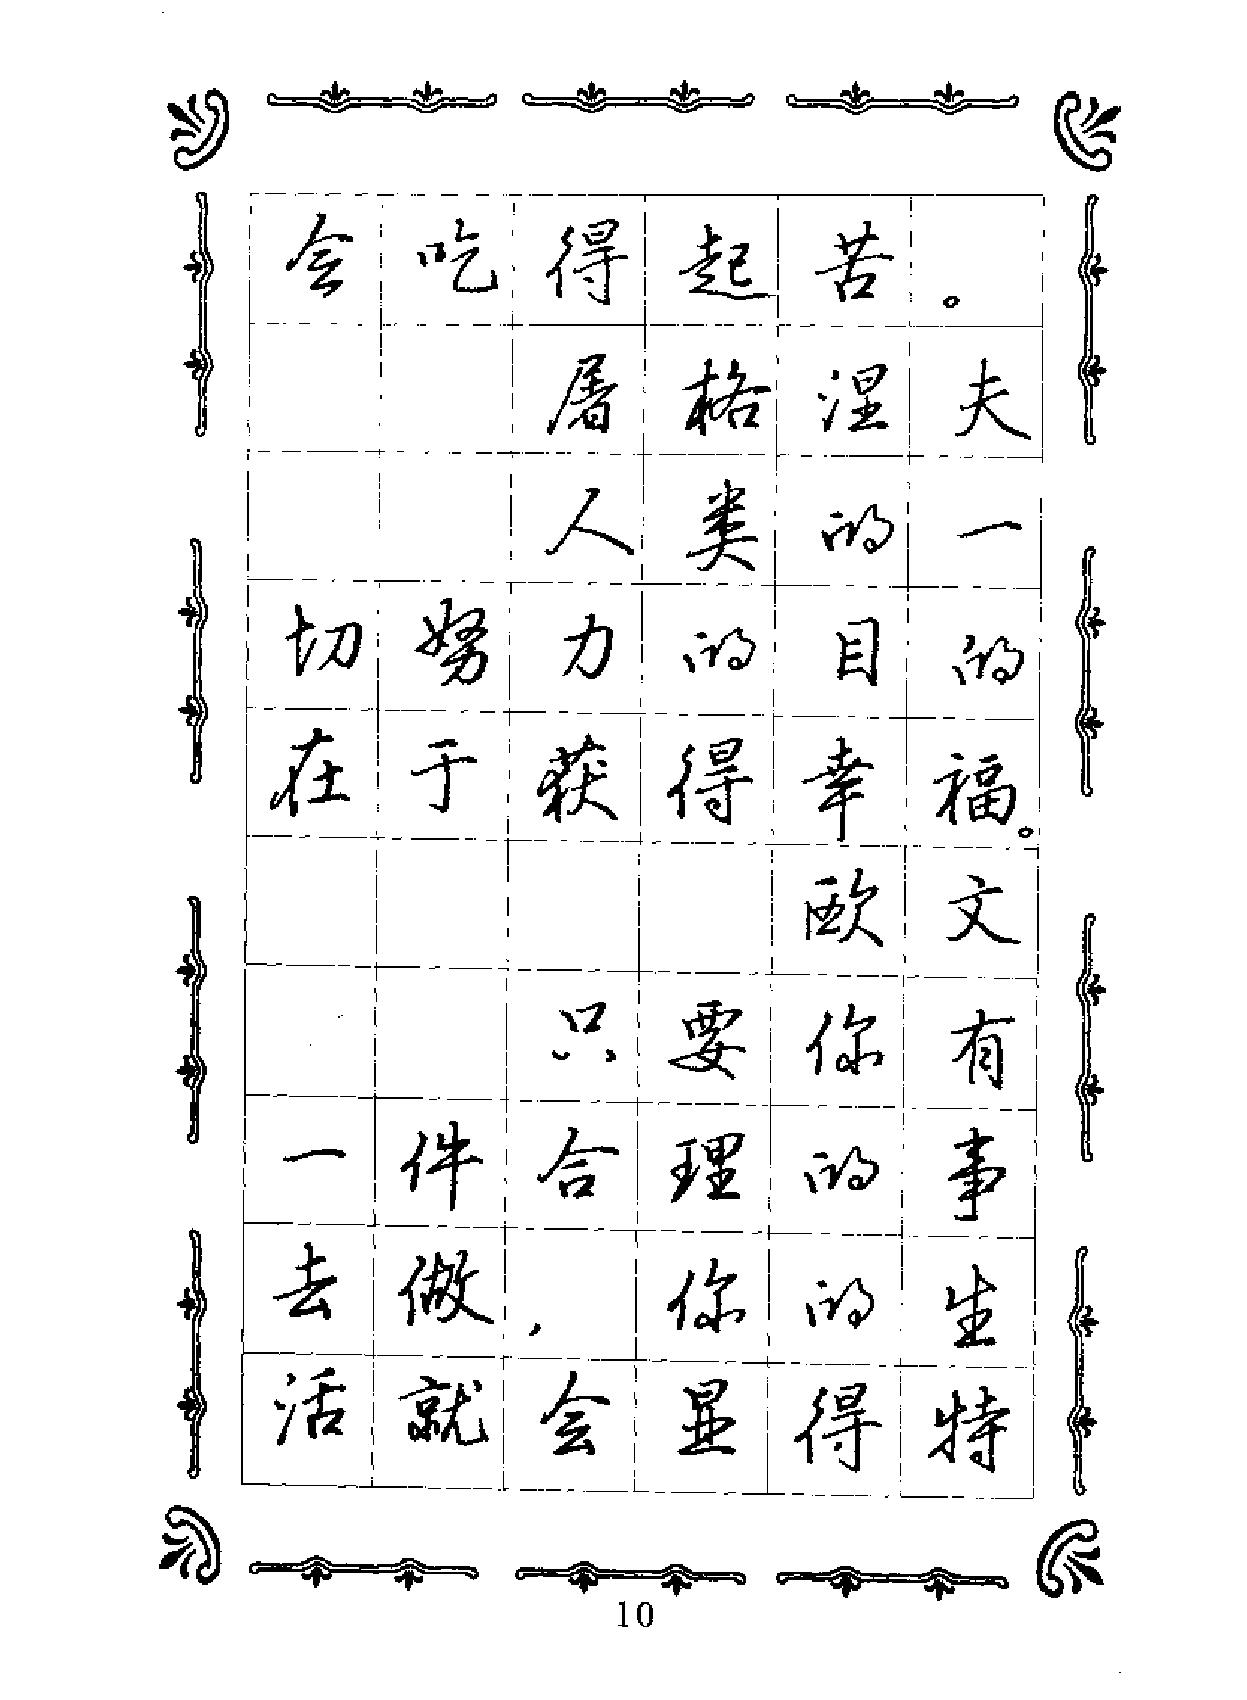 会吃得起苦。
屠格涅夫
人类的一
切努力的目的
在于获得幸福。
欧文
只要你有
一件合理的事
去做，你的生
活就会显得特
10